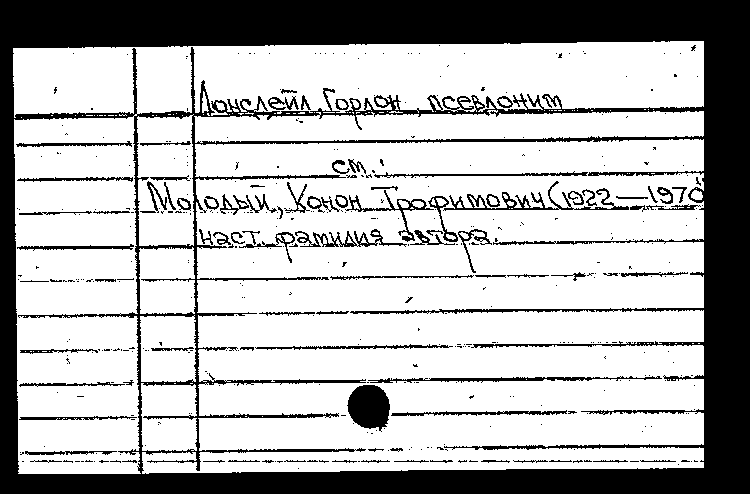 Лонслейл, Гордон, псевдоним
см.:
Молодый, Конон Трофимович (1922—1970)
наст. фамилия автора.